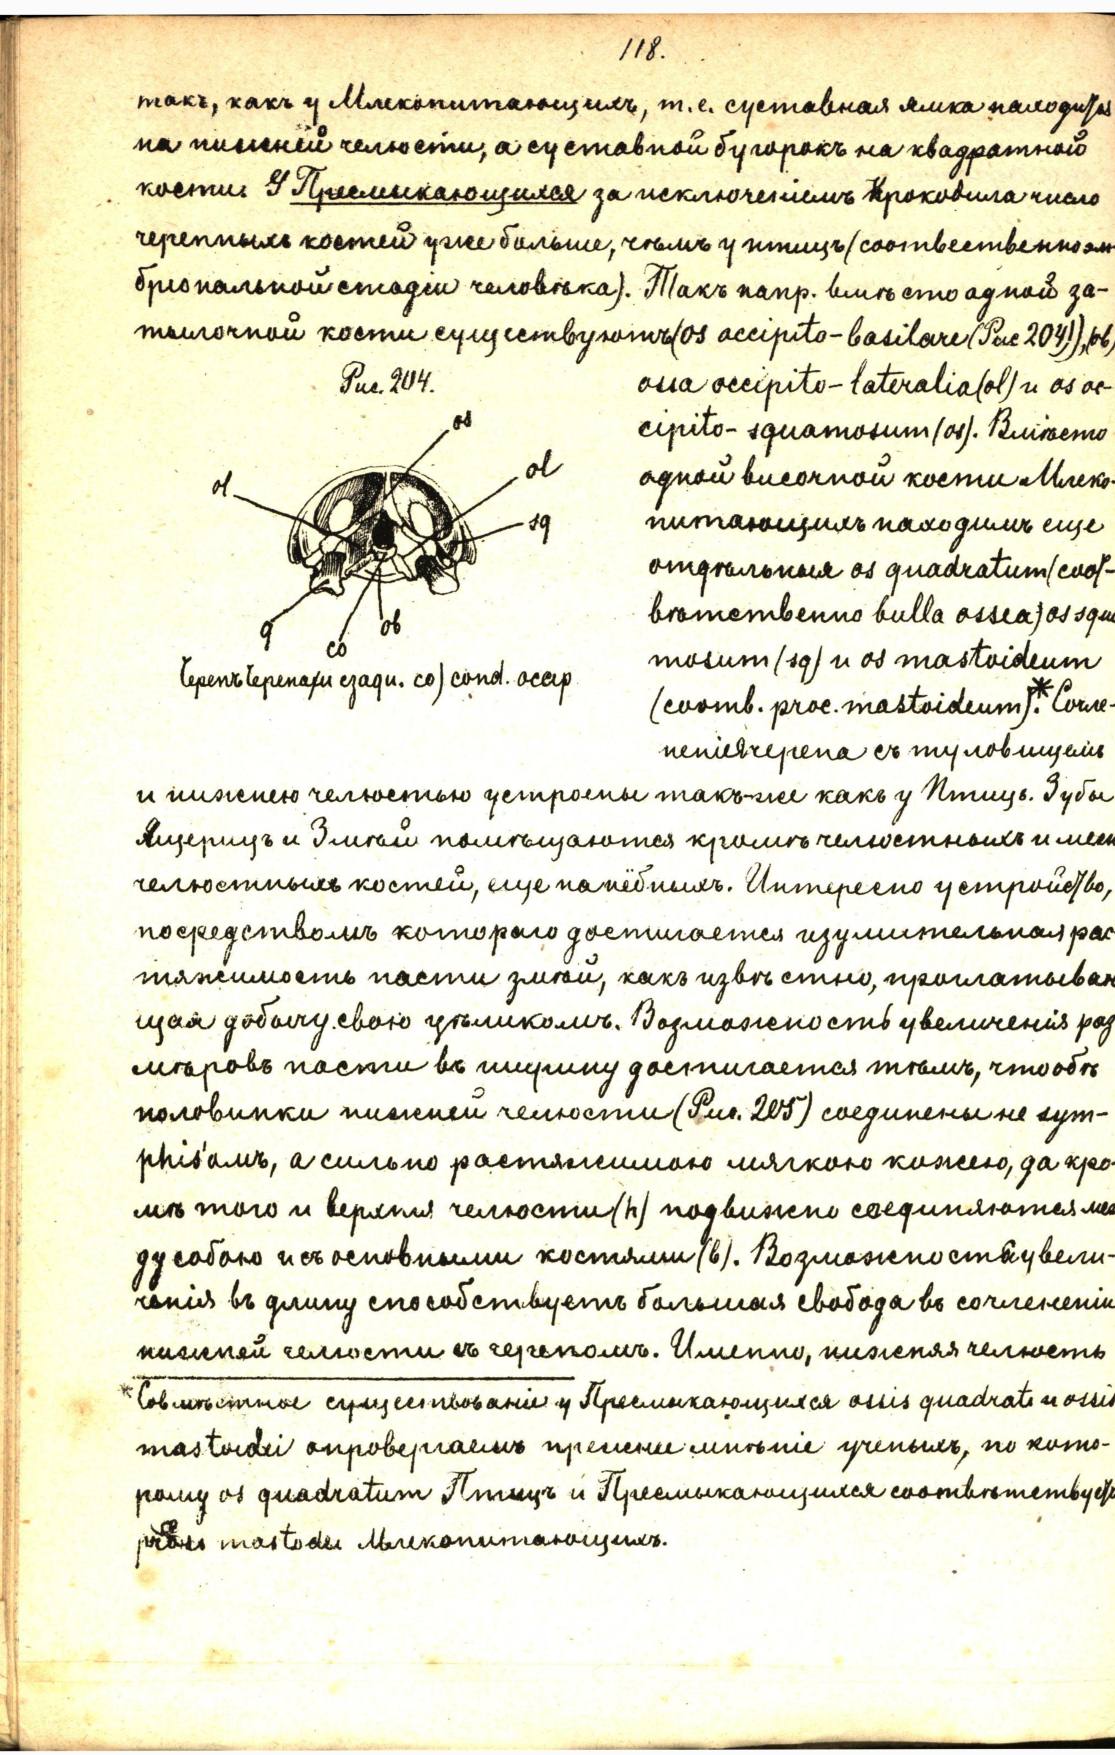 118.
такъ, какъ у Млекопитающихъ, т.е. суставная ямка находится
на нижней челюсти, а суставной бугорокъ на квадратной
кости. У Пресмыкающихся за исключенiемъ Крокодила число
черепныхъ костей уже больше, чѣмъ у птицъ (соотвественно эм-
брiональной стадiи человѣка). Такъ напр. вмѣсто одной за-
тылочной кости существуютъ (os occipito-basilare (Рис 204)), (ob)
ossa occipito-lateralia (ol) и os oc-
cipito-squamosum (os). Вмѣсто
одной височной кости Млеко-
питающихъ находимъ еще
отдѣльныя os quadratum (соот-
вѣтственно bulla ossea) os squa
mosum (sq) и os mastoideum
(соотв. proc. mastoideum).* Сочле-
ненiя черепа съ туловищемъ
Рис. 204.
os
ol
ol
sq
q
co
ob
Черепъ Черепахи сзади. co) cond. occip
и нижнею челюстью устроены такъ-же какъ у Птицъ. Зубы
Ящерицъ и Змѣй помѣщаются кромѣ челюстныхъ и меж
челюстныхъ костей, еще на нёбныхъ. Интересно устройство,
посредствомъ котораго достигается изумительная рас
тяжимость пасти змѣй, какъ извѣстно, проглатываю
щая добычу свою цѣликомъ. Возможность увеличенiя раз
мѣровъ пасти въ ширину достигается тѣмъ, что обѣ
половинки нижней челюсти (Рис. 205) соединены не sym-
phis'омъ, а сильно растяжимою мягкою кожею, да кро-
мѣ того и верхнiя челюсти (h) подвижно соединяются меж
ду собою и съ основными костями (b). Возможности увели-
ченiя въ длину способствуетъ большая свобода въ сочлененiи
нижней челюсти съ черепомъ. Именно, нижняя челюсть
* Совмѣстное существованiе у Пресмыкающихся ossis quadrati и ossis
mastoidei опровергаемъ прежнее мнѣнiе ученыхъ, по кото-
рому os quadratum Птицъ и Пресмыкающихся соотвѣтствуетъ
mastodei Млекопитающихъ.